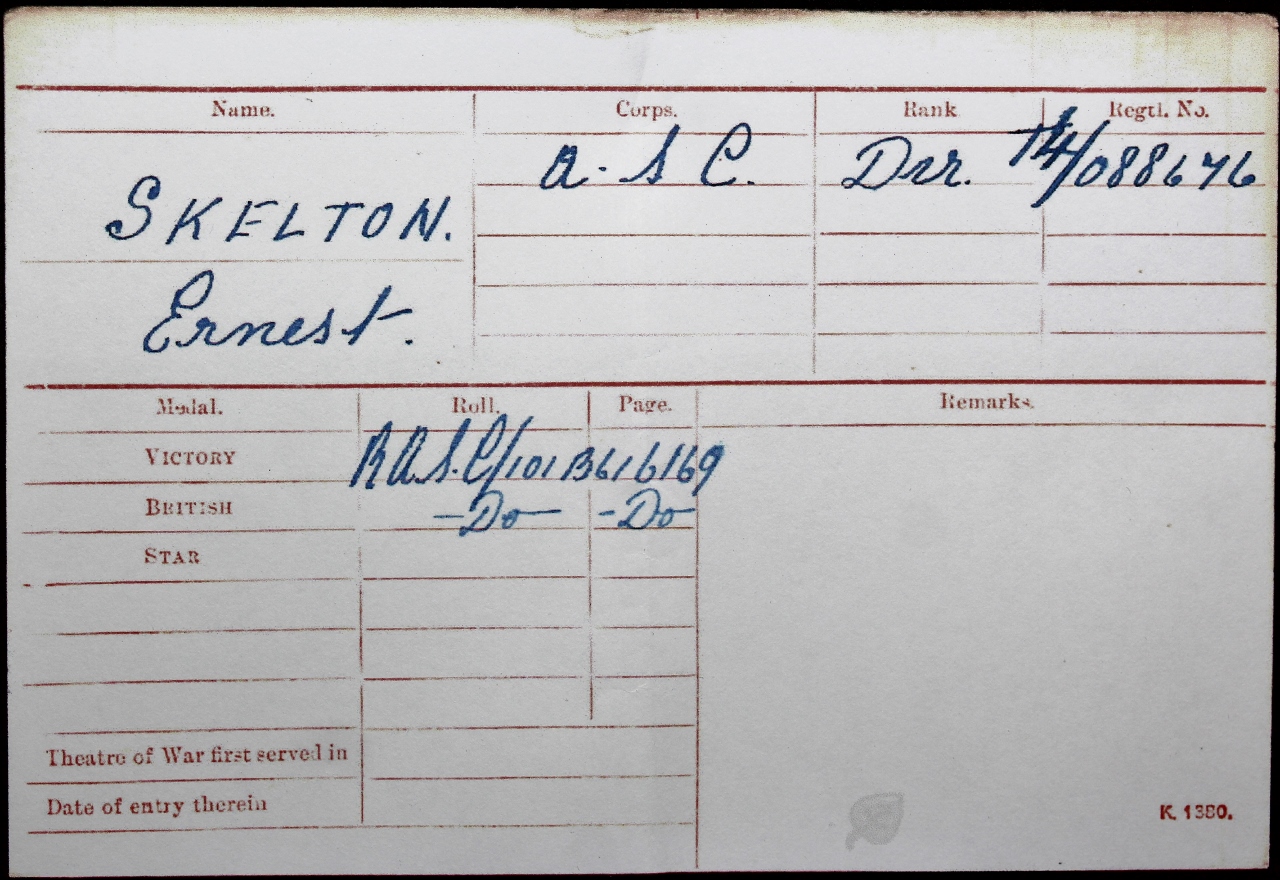 Name. Corps. Rank Regtl. No.
A. S C. Dvr. T4/088676
SKELTON.
Ernest.
Medal. Roll. Page. Remarks.
VICTORY RASC/101B616169
BRITISH -Do- -Do-
STAR
Theatre of War first served in
Date of entry therein
K. 1380.